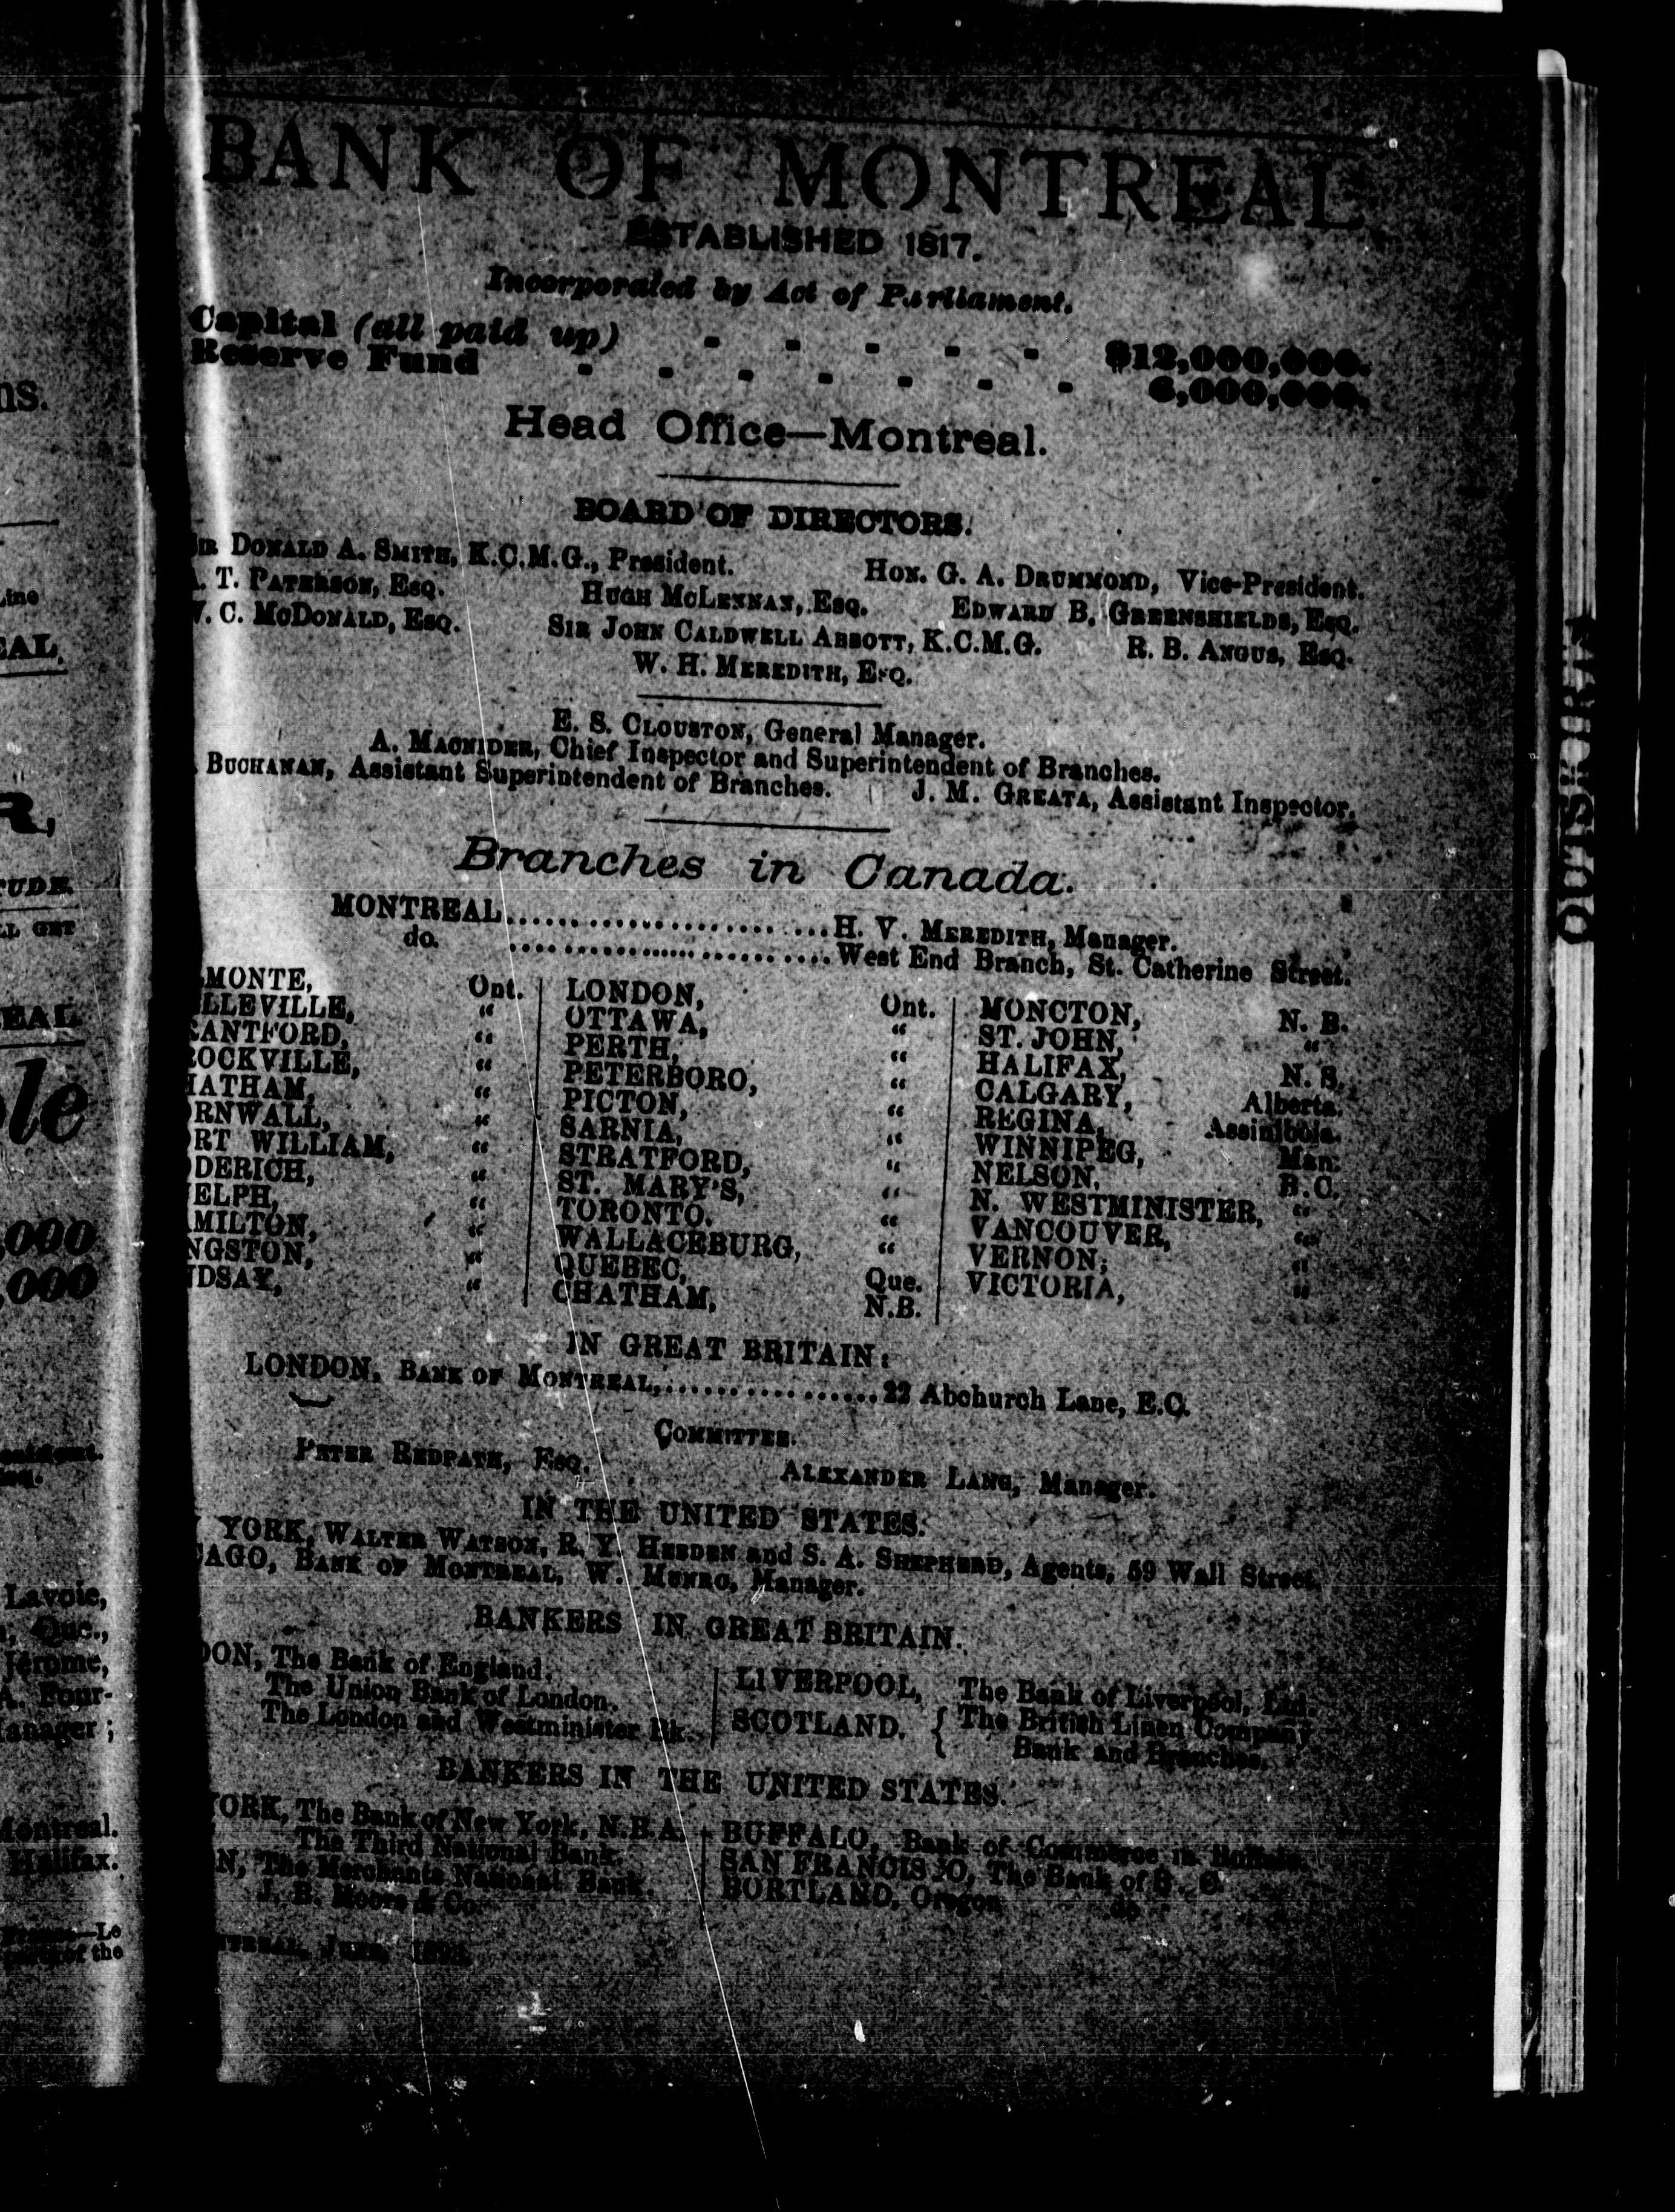 BANK OF MONTREAL
ESTABLISHED 1817.
Incorporated by Act of Parliament.
Capital (all paid up) - - - - - $12,000,000.
Reserve Fund - - - - - - - 6,000,000.
Head Office—Montreal.
BOARD OF DIRECTORS.
SIR DONALD A. SMITH, K.C.M.G., President. HON. G. A. DRUMMOND, Vice-President.
. T. PATERSON, ESQ. HUGH MCLENNAN, ESQ. EDWARD B. GREENSHIELDS, ESQ.
W. C. MCDONALD, ESQ. SIR JOHN CALDWELL ABBOTT, K.C.M.G. R. B. ANGUS, ESQ.
W. H. MEREDITH, ESQ.
E. S. CLOUSTON, General Manager.
A. MACNIDER, Chief Inspector and Superintendent of Branches.
BUCHANAN, Assistant Superintendent of Branches. J. M. GREATA, Assistant Inspector.
Branches in Canada.
MONTREAL........................H. V. MEREDITH, Manager.
do. ........................West End Branch, St. Catherine Street.
LMONTE, Ont. LONDON, Ont. MONCTON, N. B.
LLEVILLE, " OTTAWA, " ST. JOHN, "
RANTFORD, " PERTH, " HALIFAX, N. S.
ROCKVILLE, " PETERBORO, " CALGARY, Alberta.
HATHAM, " PICTON, " REGINA, Assiniboia.
ORNWALL, " SARNIA, " WINNIPEG, Man.
ORT WILLIAM, " STRATFORD, " NELSON, B.C.
ODERICH, " ST. MARY'S, " N. WESTMINISTER, "
ELPH, " TORONTO, " VANCOUVER, "
MILTON, " WALLACEBURG, " VERNON, "
NGSTON, " QUEBEC, Que. VICTORIA, "
NDSAY, " CHATHAM, N.B.
IN GREAT BRITAIN:
LONDON, BANK OF MONTREAL,..................22 Abchurch Lane, E.C.
COMMITTEE.
PETER REDPATH, ESQ. ALEXANDER LANG, Manager.
IN THE UNITED STATES.
YORK, WALTER WATSON, R. Y. HEBDEN and S. A. SHEPHERD, Agents, 59 Wall Street.
CAGO, BANK OF MONTREAL, W. MUNRO, Manager.
BANKERS IN GREAT BRITAIN.
DON, The Bank of England. LIVERPOOL, The Bank of Liverpool, Ltd.
The Union Bank of London. SCOTLAND. { The British Linen Company
The London and Westminister Bk. Bank and Branches.
BANKERS IN THE UNITED STATES.
YORK, The Bank of New York, N.B.A. BUFFALO, Bank of Commerce in Buffalo.
The Third National Bank. SAN FRANCISCO, The Bank of B. C.
N, The Merchants National Bank. BORTLAND, Oregon do
J. B. Moore & Co.
OUTSKIRTS
ns.
Line
EAL.
R,
TUDE.
LL GET
EAL
le
,000
,000
Lavoie,
Que.,
Jérome,
A. Four-
Manager ;
Montreal.
Halifax.
Le
of the